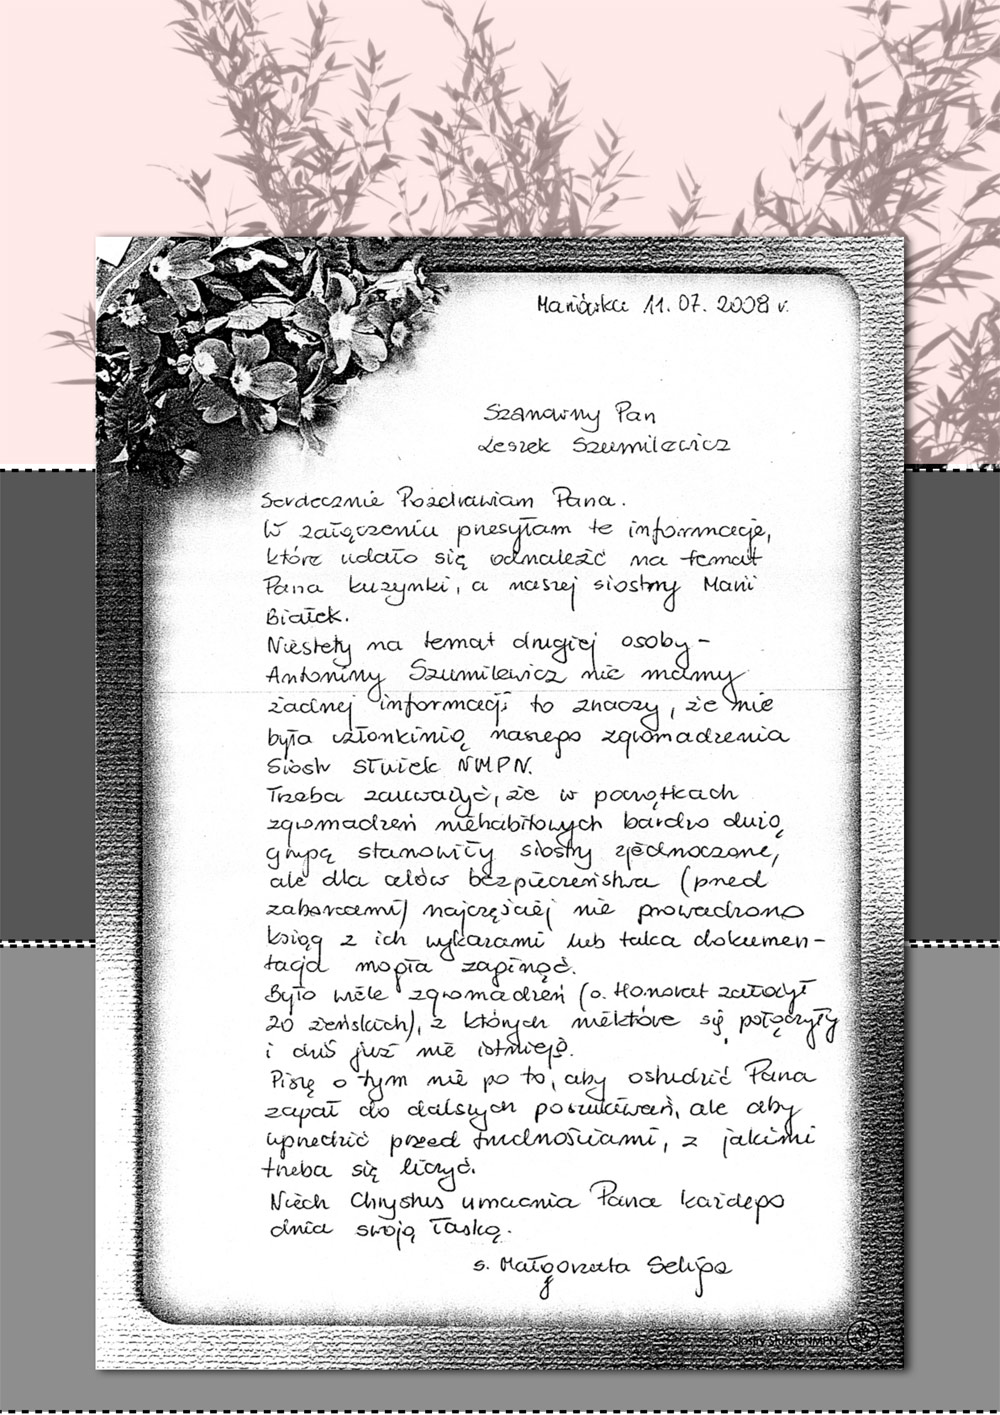 Mariówka 11.07.2008 r.
Szanowny Pan
Leszek Szumilewicz
Serdecznie Pozdrawiam Pana.
W załączeniu przesyłam te informacje,
które udało się odnaleźć na temat
Pana kuzynki, a naszej siostry Marii
Białek.
Niestety na temat drugiej osoby -
Antoniny Szumilewicz nie mamy
żadnej informacji to znaczy, że nie
była członkinią naszego zgromadzenia
Sióstr Służek NMPN.
Trzeba zauważyć, że w początkach
zgromadzeń niehabitowych bardzo dużą
grupę stanowiły siostry zjednoczone,
ale dla celów bezpieczeństwa (przed
zaborcami) najczęściej nie prowadzono
ksiąg z ich wykazami lub taka dokumen-
tacja mogła zaginąć.
Było wiele zgromadzeń (o. Honorat założył
20 żeńskich), z których niektóre się połączyły
i dziś już nie istnieją.
Piszę o tym nie po to, aby ostudzić Pana
zapał do dalszych poszukiwań, ale aby
uprzedzić przed trudnościami, z jakimi
trzeba się liczyć.
Niech Chrystus umacnia Pana każdego
dnia swoją łaską.
s. Małgorzata
Siostry Służki NMPN